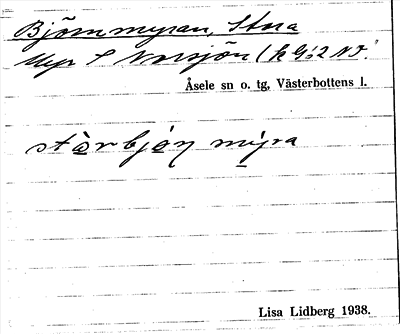 Björnmyran, Stora
Myr S Norsjön (h 962 NV.
Åsele sn o. tg, Västerbottens l.
stòrbjòn mýra
Lisa Lidberg 1938.